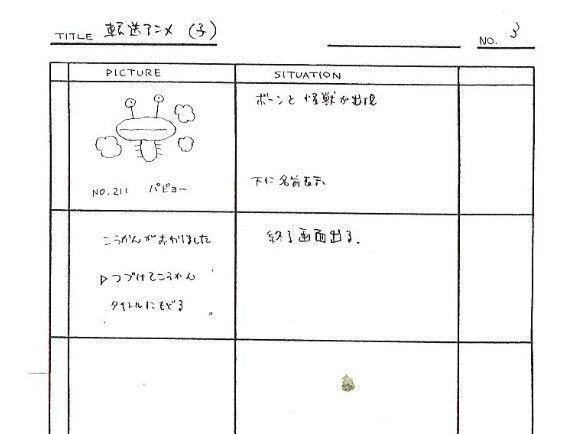 TITLE 転送アニメ (子)
NO. 3
PICTURE
SITUATION
ボーンと怪獣が出現
下に名前表示
NO.211 パピョー
こうかんがおわりました
▷つづけてこうかん
タイトルにもどる
終了画面出る。